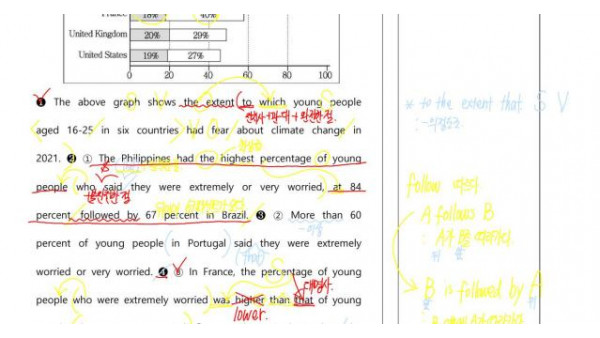 France 18% 40%
United Kingdom 20% 29%
United States 19% 27%
0 20 40 60 80 100
❶ The above graph shows the extent to which young people
전치사+관·대+완전한 절.
* to the extent that S V
aged 16-25 in six countries had fear about climate change in
: ~의 정도로.
2021. ❷ ① The Philippines had the highest percentage of young
people who said they were extremely or very worried, at 84
불완전한 절
follow 따르다
percent, followed by 67 percent in Brazil. ❸ ② More than 60
A follows B
percent of young people in Portugal said they were extremely
(that)
worried or very worried. ❹ ③ In France, the percentage of young
대명사.
B is followed by A
people who were extremely worried was higher than that of young
lower.